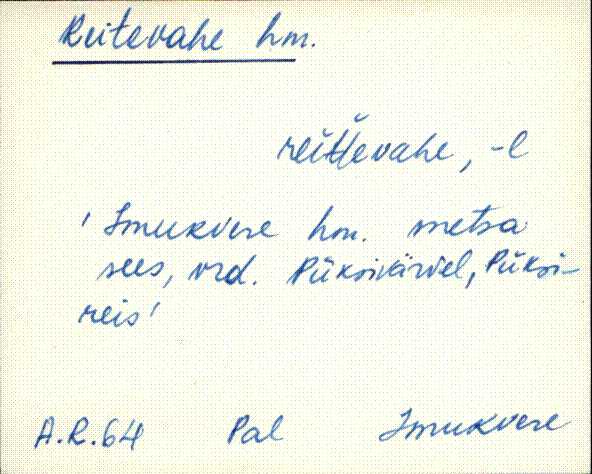 Reitevahe hm.
reit̆t̆evahe, -l
' Imukvere hm. metsa
sees, vrd. Püksivärvel, Püksi-
reis'
A.R.64 Pal Imukvere